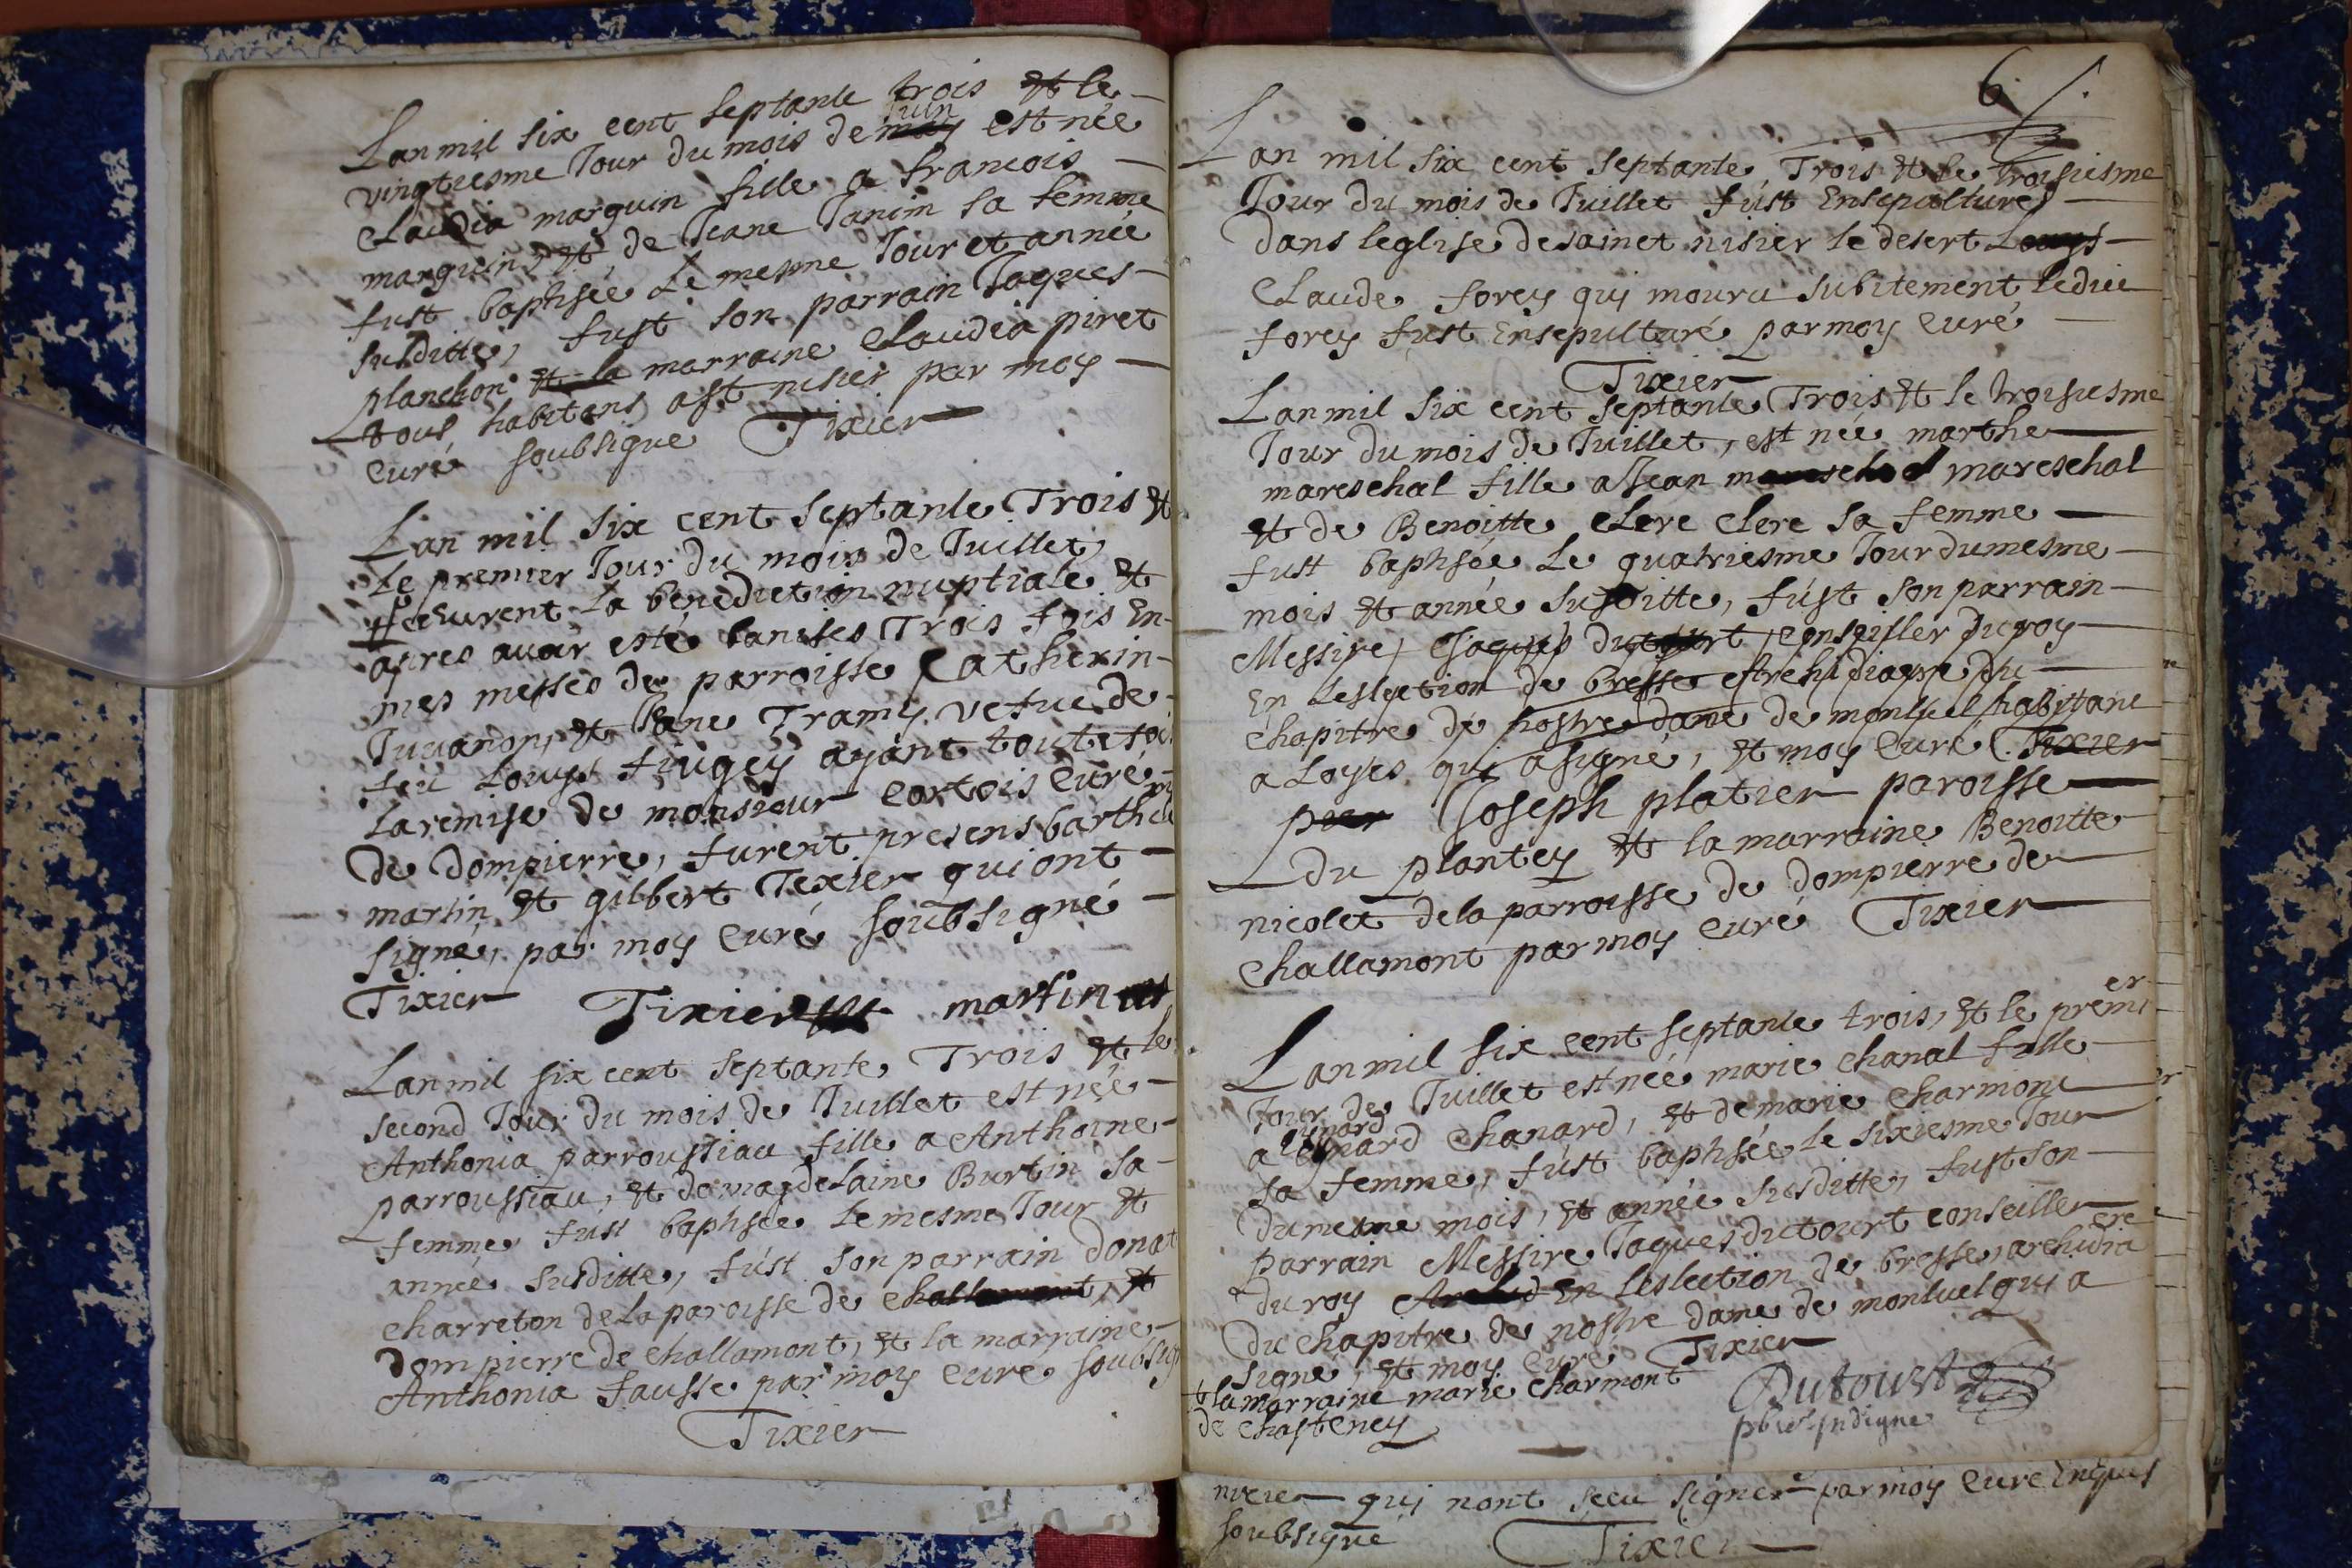 Lan mil six cent septante trois et le
vingtiesme Jour du mois de juin est née
Claudia marguin fille a francois
marguin, et de Jeane Janin sa femme
fust baptisée Le mesme Jour et année
susditte, fust son parrain Jaques
planchon et la marraine Claudia piret
tous habitans a st nisier par moy
Curé soubsigne Tixier
Lan mil six cent septante Trois et
Le premier Jour du mois de Juillet
receurent La benediction nuptiale et
apres avoir esté banises Trois fois En
mes messes de parroisse Catherin
Juvanon, et Jeane Tramy vefue de
feu Louys fiugey ayant toutefois
La remise de monsieur Cortois Curé
de Dompierre, furent presens
martin et gilbert Texier qui ont
signé, par moy Curé soubsigné
Tixier Tixier martin
Lan mil six cent septante, Trois et le
second Jour du mois de Juillet est née
Anthonia parroussiau fille a Anthoine
parroussiau, et de magdelaine Burtin sa
femme fust baptisée le mesme Jour et
année susditte, fust son parrain Donat
charreton de la paroisse de challamont, et
Dompierre de challamont, et la marraine
Anthonia fausse par moy Cure soubsig
Tixier
6
Lan mil six cent septante, Trois et le Troisiesme
Jour du mois de Juillet fust Ensepulturé
dans leglise de sainct nisier le desert Louys
Claude forey qui mouru subitement ledit
forey fust Ensepulturé par moy Curé
Tixier
Lan mil six cent septante Trois et le troisiesme
Jour du mois de Juillet, est née marthe
mareschal fille a Jean mareschal mareschal
et de Benoitte Clere Clere sa femme
fust baptisée Le quatriesme Jour du mesme
mois et année susditte, fust son parrain
Messire, Jaques dutourt, conseiller du roy
En Leslection de bresse Archidiacre du
Chapitre de nostre dame de montluel habittant
a Loyes qui a signé, et moy Curé Tixier
pier Joseph platier paroisse
du plantey et la marraine Benoitte
nicolet de la parroisse de dompierre de
Challamont par moy curé Tixier
Lan mil six cent septante trois, et le premier
Jour de Juillet est née marie chanal fille
a Chanard, et de marie Charmont
sa femme, fust baptisée le sixiesme Jour
du mesme mois, et année susditte, fust son
parrain Messire Jaques dutourt conseiller
du roy En Leslection de bresse, archidiacre
du chapitre de nostre dame de montluel qui a
signé, et moy Curé Tixier
et la marraine marie Charmont
de Chasteney
Dutourt
pbre Indigne
qui nont sceu signer par moy Cure
soubsigné Tixier